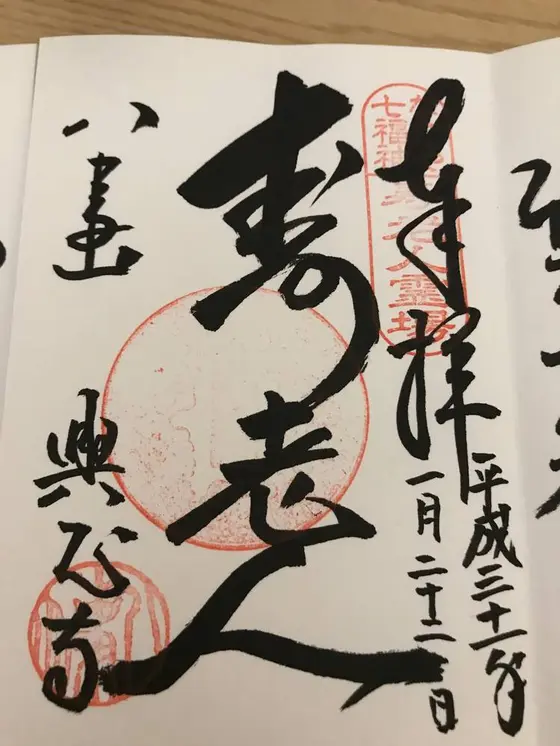 奉拝
平成三十一年
一月二十二日
七福神
寿老人霊場
寿老人
八事山
興正寺